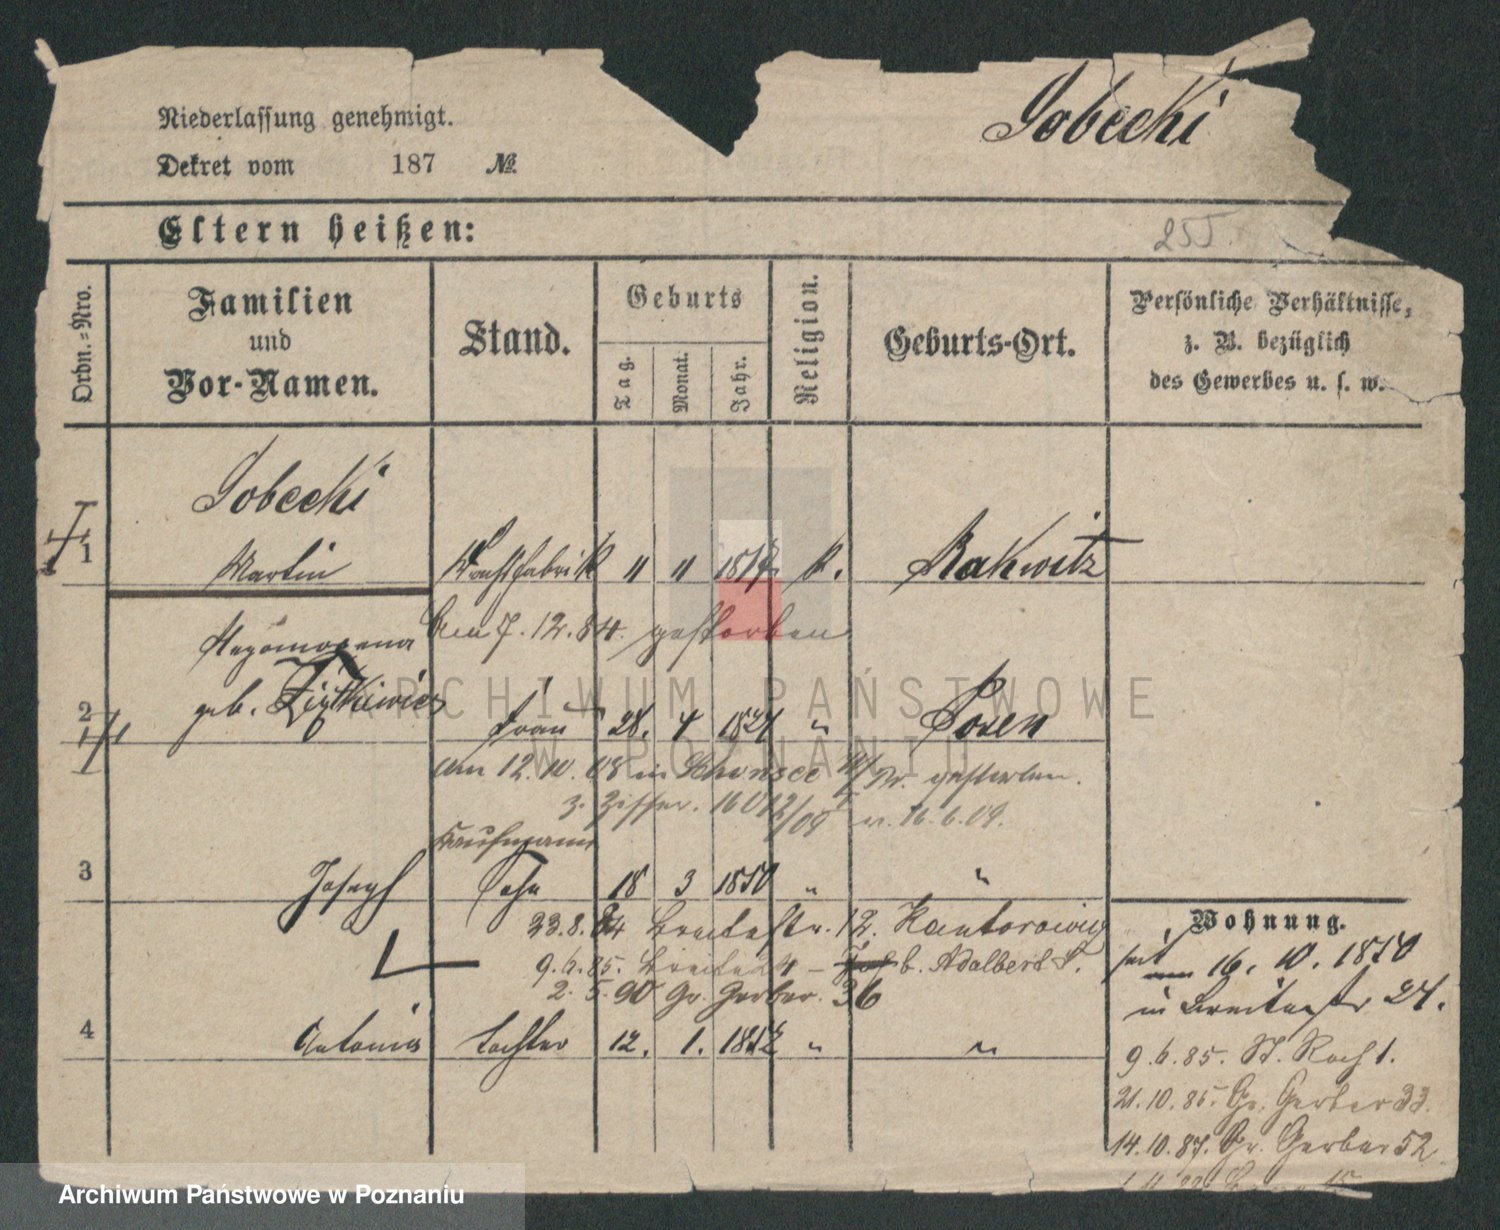 Niederlassung genehmigt.
Dekret vom 187 №
Sobecki
Eltern heißen:
255.
Ordn.=Nro.
Familien
und
Vor-Namen.
Stand.
Geburts
Tag.
Monat.
Jahr.
Religion.
Geburts-Ort.
Persönliche Verhältnisse,
z. B. bezüglich
des Gewerbes u. s. w.
Sobecki
1 Martin " " k. Rakwitz
Am 7. 12. 84. gestorben
Nepomocena
2 geb. Frau 28. 4 " Posen
am 12. 10. 08 in Schönsee W/Pr. gestorben.
z. Ziffer. v. 16. 6. 09.
Kaufmann
3 Joseph Sohn 18 3 1850 " "
23.8.84 Breitestr. 12. Kantorowicz
9.6.85. Breite 24 – b. Adalbert S.
2. 5. 90 Gr. Gerber. 36
4 Antonia Tochter 12. 1. " "
Wohnung.
seit 16. 10. 1870
in Breitestr 24.
9.6.85. St. Roch 1.
21.10.86. Gr. Gerber 33.
14.10.87. Gr. Gerber 52
ARCHIWUM PAŃSTWOWE
W POZNANIU
Archiwum Państwowe w Poznaniu